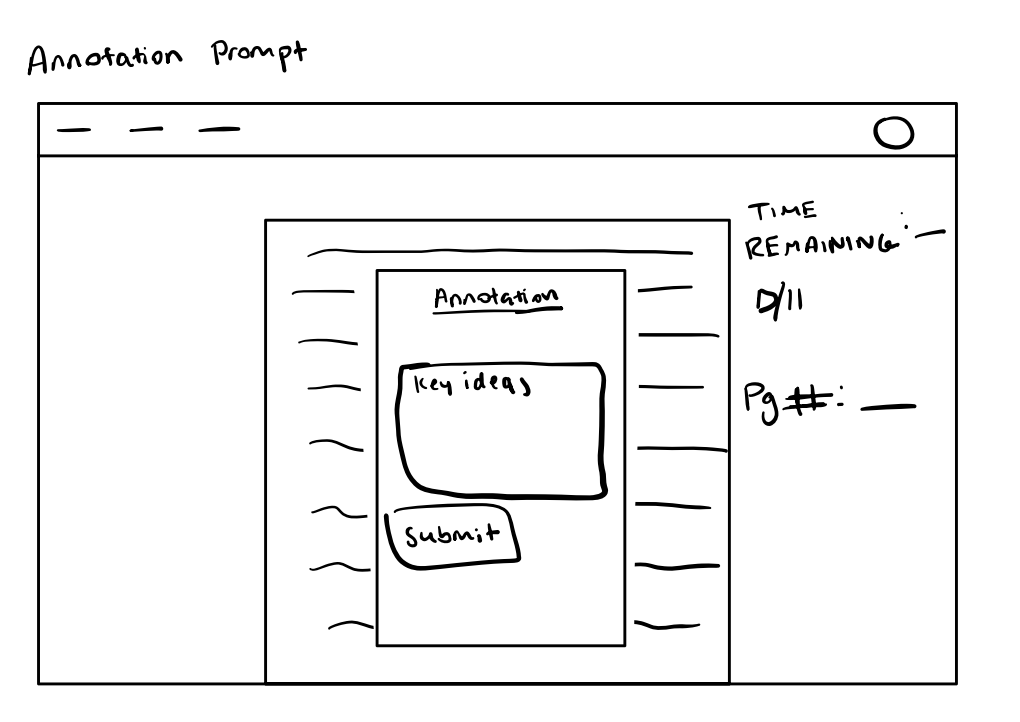 Annotation Prompt
Annotation
Key ideas
Submit
TIME
REMAINING:
Pg #: